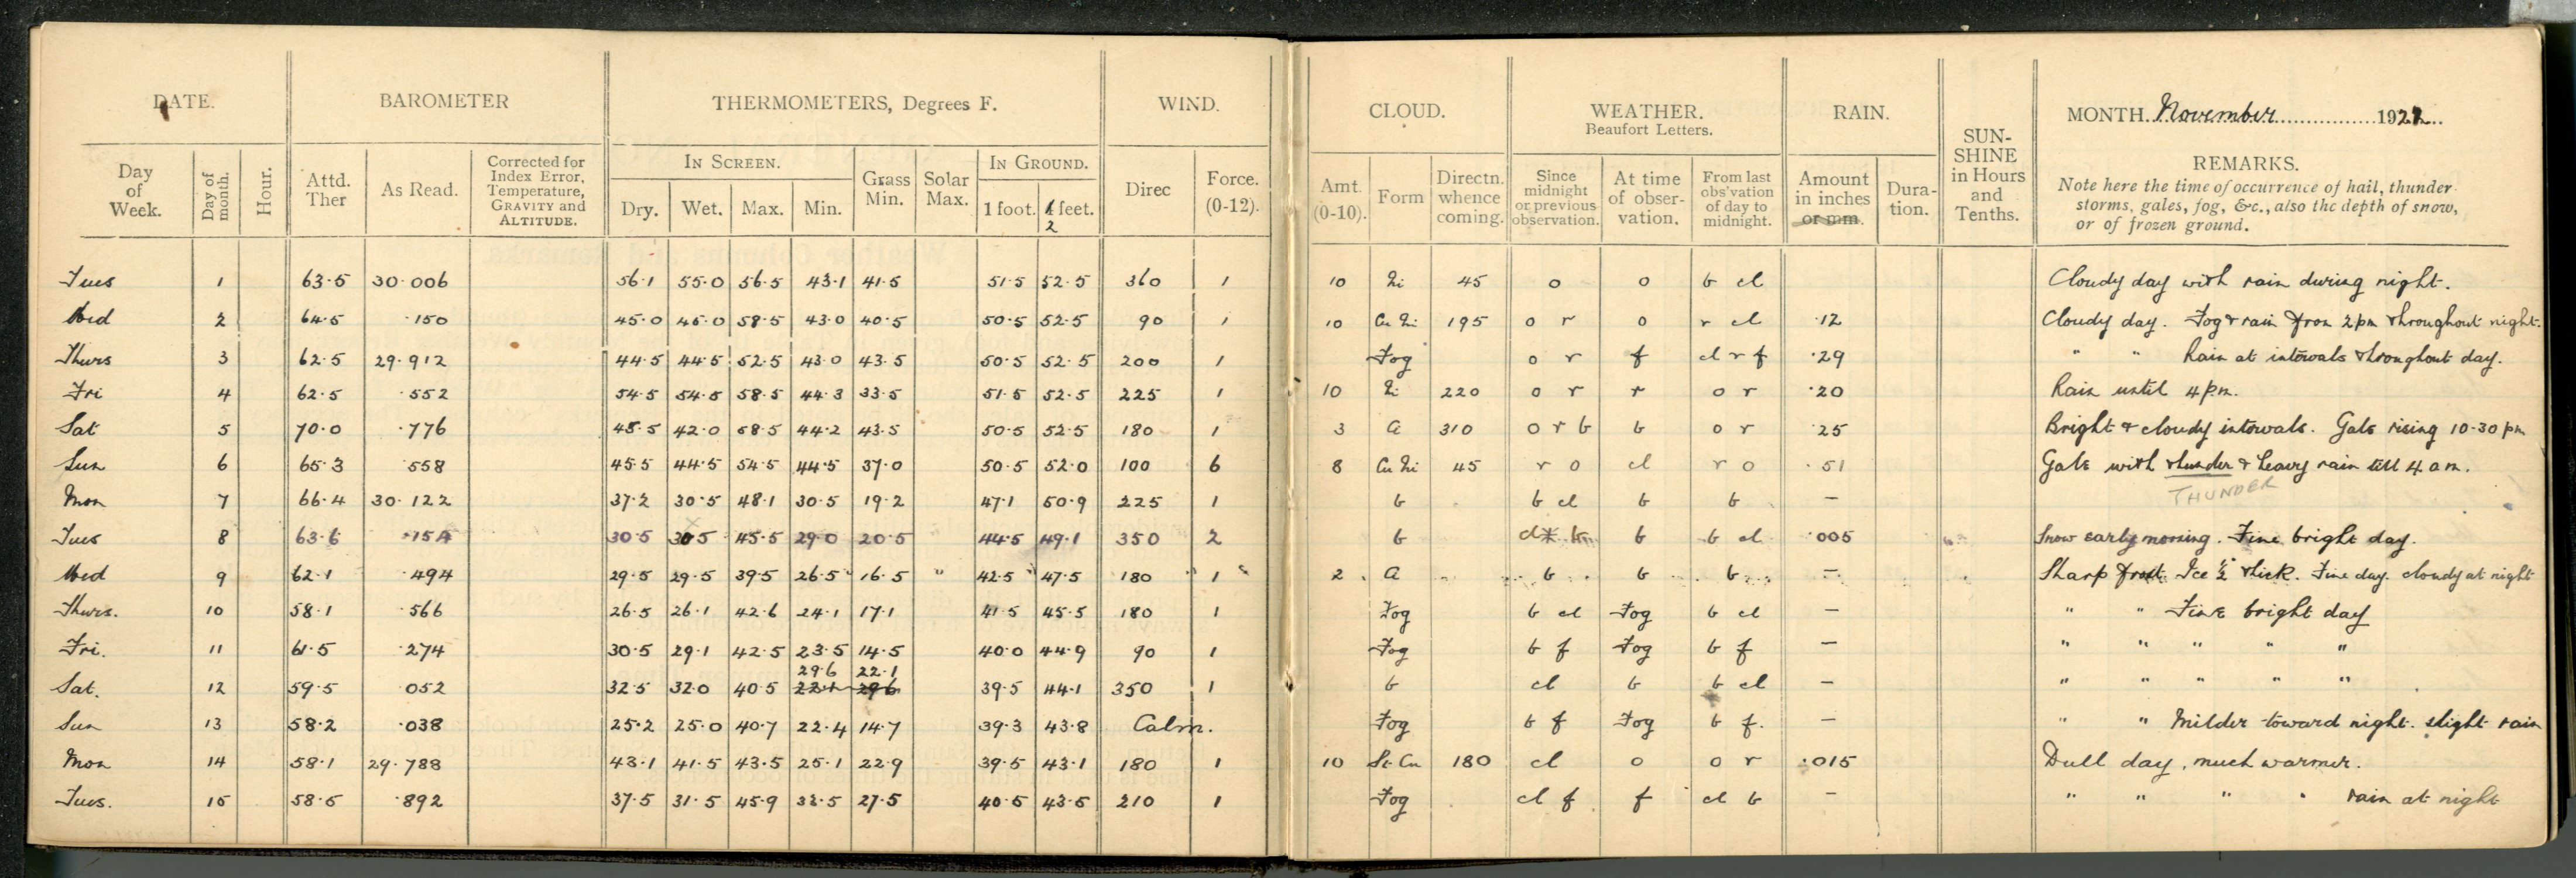 DATE. BAROMETER THERMOMETERS, Degrees F. WIND. CLOUD. WEATHER. Beaufort Letters. RAIN. SUN-SHINE in Hours and Tenths. MONTH. November 192
Day of Week. Day of month. Hour. Attd. Ther As Read. Corrected for Index Error, Temperature, GRAVITY and ALTITUDE. IN SCREEN. Dry. Wet. Max. Min. Grass Min. Solar Max. IN GROUND. 1 foot. feet. 2 Direc Force. (0-12). Amt. (0-10). Form Directn. whence coming. Since midnight or previous observation. At time of obser-vation. From last obs'vation of day to midnight. Amount in inches or mm. Dura-tion. REMARKS.
Note here the time of occurrence of hail, thunder
storms, gales, fog, &c., also the depth of snow,
or of frozen ground.
Tues 1 63.5 30.006 56.1 55.0 56.5 43.1 41.5 51.5 52.5 360 1 10 Ni 45 o o b cl Cloudy day with rain during night.
Wed 2 64.5 .150 45.0 45.0 58.5 43.0 40.5 50.5 52.5 90 1 10 Cu Ni 195 o r o r cl .12 Cloudy day. Fog & rain from 2pm throughout night.
Thurs 3 62.5 29.912 44.5 44.5 52.5 43.0 43.5 50.5 52.5 200 1 Fog o r f cl r f .29 " " Rain at intervals throughout day.
Fri 4 62.5 .552 54.5 54.5 58.5 44.3 33.5 51.5 52.5 225 1 10 Ni 220 o r r o r .20 Rain until 4 p.m.
Sat 5 70.0 .776 48.5 42.0 58.5 44.2 43.5 50.5 52.5 180 1 3 a 310 o r b b o r .25 Bright & cloudy intervals. Gale rising 10-30 pm
Sun 6 65.3 .558 45.5 44.5 54.5 44.5 37.0 50.5 52.0 100 6 8 Cu Ni 45 r o cl r o .51 Gale with thunder & heavy rain till 4 a m.
THUNDER
Mon 7 66.4 30.122 37.2 30.5 48.1 30.5 19.2 47.1 50.9 225 1 b b cl b b —
Tues 8 63.6 .154 30.5 30.5 45.5 29.0 20.5 44.5 49.1 350 2 b cl* b b cl .005 Snow early morning. Fine bright day.
Wed 9 62.1 .494 29.5 29.5 39.5 26.5 16.5 " 42.5 47.5 180 1 2 a b b b — Sharp frost. Ice ½" thick. Fine day. cloudy at night
Thurs. 10 58.1 .566 26.5 26.1 42.6 24.1 17.1 41.5 45.5 180 1 Fog b cl Fog b cl — " " Fine bright day
Fri. 11 61.5 .274 30.5 29.1 42.5 23.5 14.5 40.0 44.9 90 1 Fog b f Fog b f — " " " " "
29.6 22.1
Sat. 12 59.5 .052 32.5 32.0 40.5 22.1 29.6 39.5 44.1 350 1 b cl b b cl — " " " " "
Sun 13 58.2 .038 25.2 25.0 40.7 22.4 14.7 39.3 43.8 Calm. Fog b f Fog b f. — " " Milder toward night. slight rain
Mon 14 58.1 29.788 43.1 41.5 43.5 25.1 22.9 39.5 43.1 180 1 10 St-Cu 180 cl o o r .015 Dull day, much warmer.
Tues. 15 58.5 .892 37.5 31.5 45.9 32.5 27.5 40.5 43.5 210 1 Fog cl f f cl b — " " " " rain at night